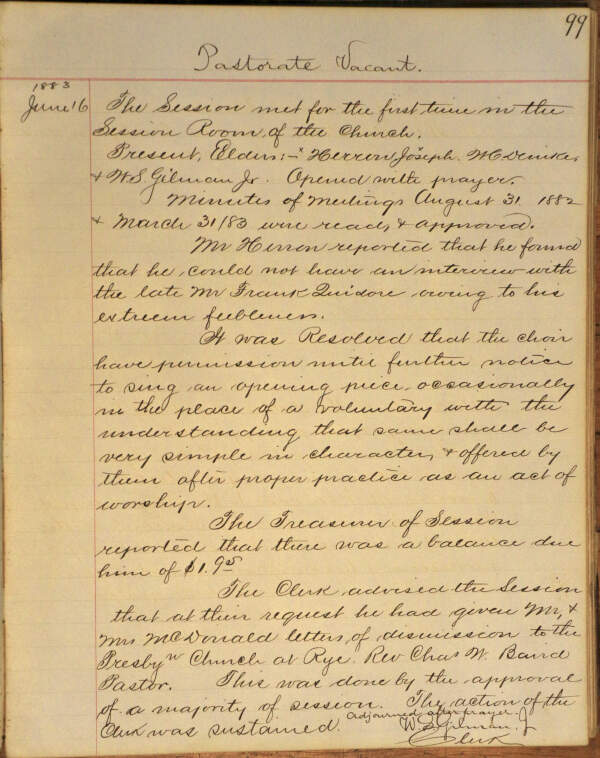 99
Pastorate Vacant.
1883
June 16
The Session met for the first time in the
Session Room, of the Church.
Present, Elders:- Herron, Joseph, W C Deniker
& W. S. Gilman Jr. Opened with prayer.
Minutes of Meetings August 31 1882
& March 31/83 were read, & approved.
Mr Herron reported that he found
that he could not have an interview with
the late Mr Frank Quidore owing to his
extreem feebleness.
It was Resolved that the choir
have permission until further notice
to sing an opening piece, occasionally
in the place of a voluntary with the
understanding that same shall be
very simple in character, & offered by
them after proper practice as an act of
worship.
The Treasurer of Session
reported that there was a balance due
him of $1.95
The Clerk advised the Session
that at their request he had given Mr, &
Mrs McDonald letters, of dismission to the
Presbyn Church at Rye. Rev Chas W. Baird
Pastor. This was done by the approval
of a majority of session. The action of the
Clerk was sustained. Adjourned after prayer.
W. S. Gilman, Jr
Clerk